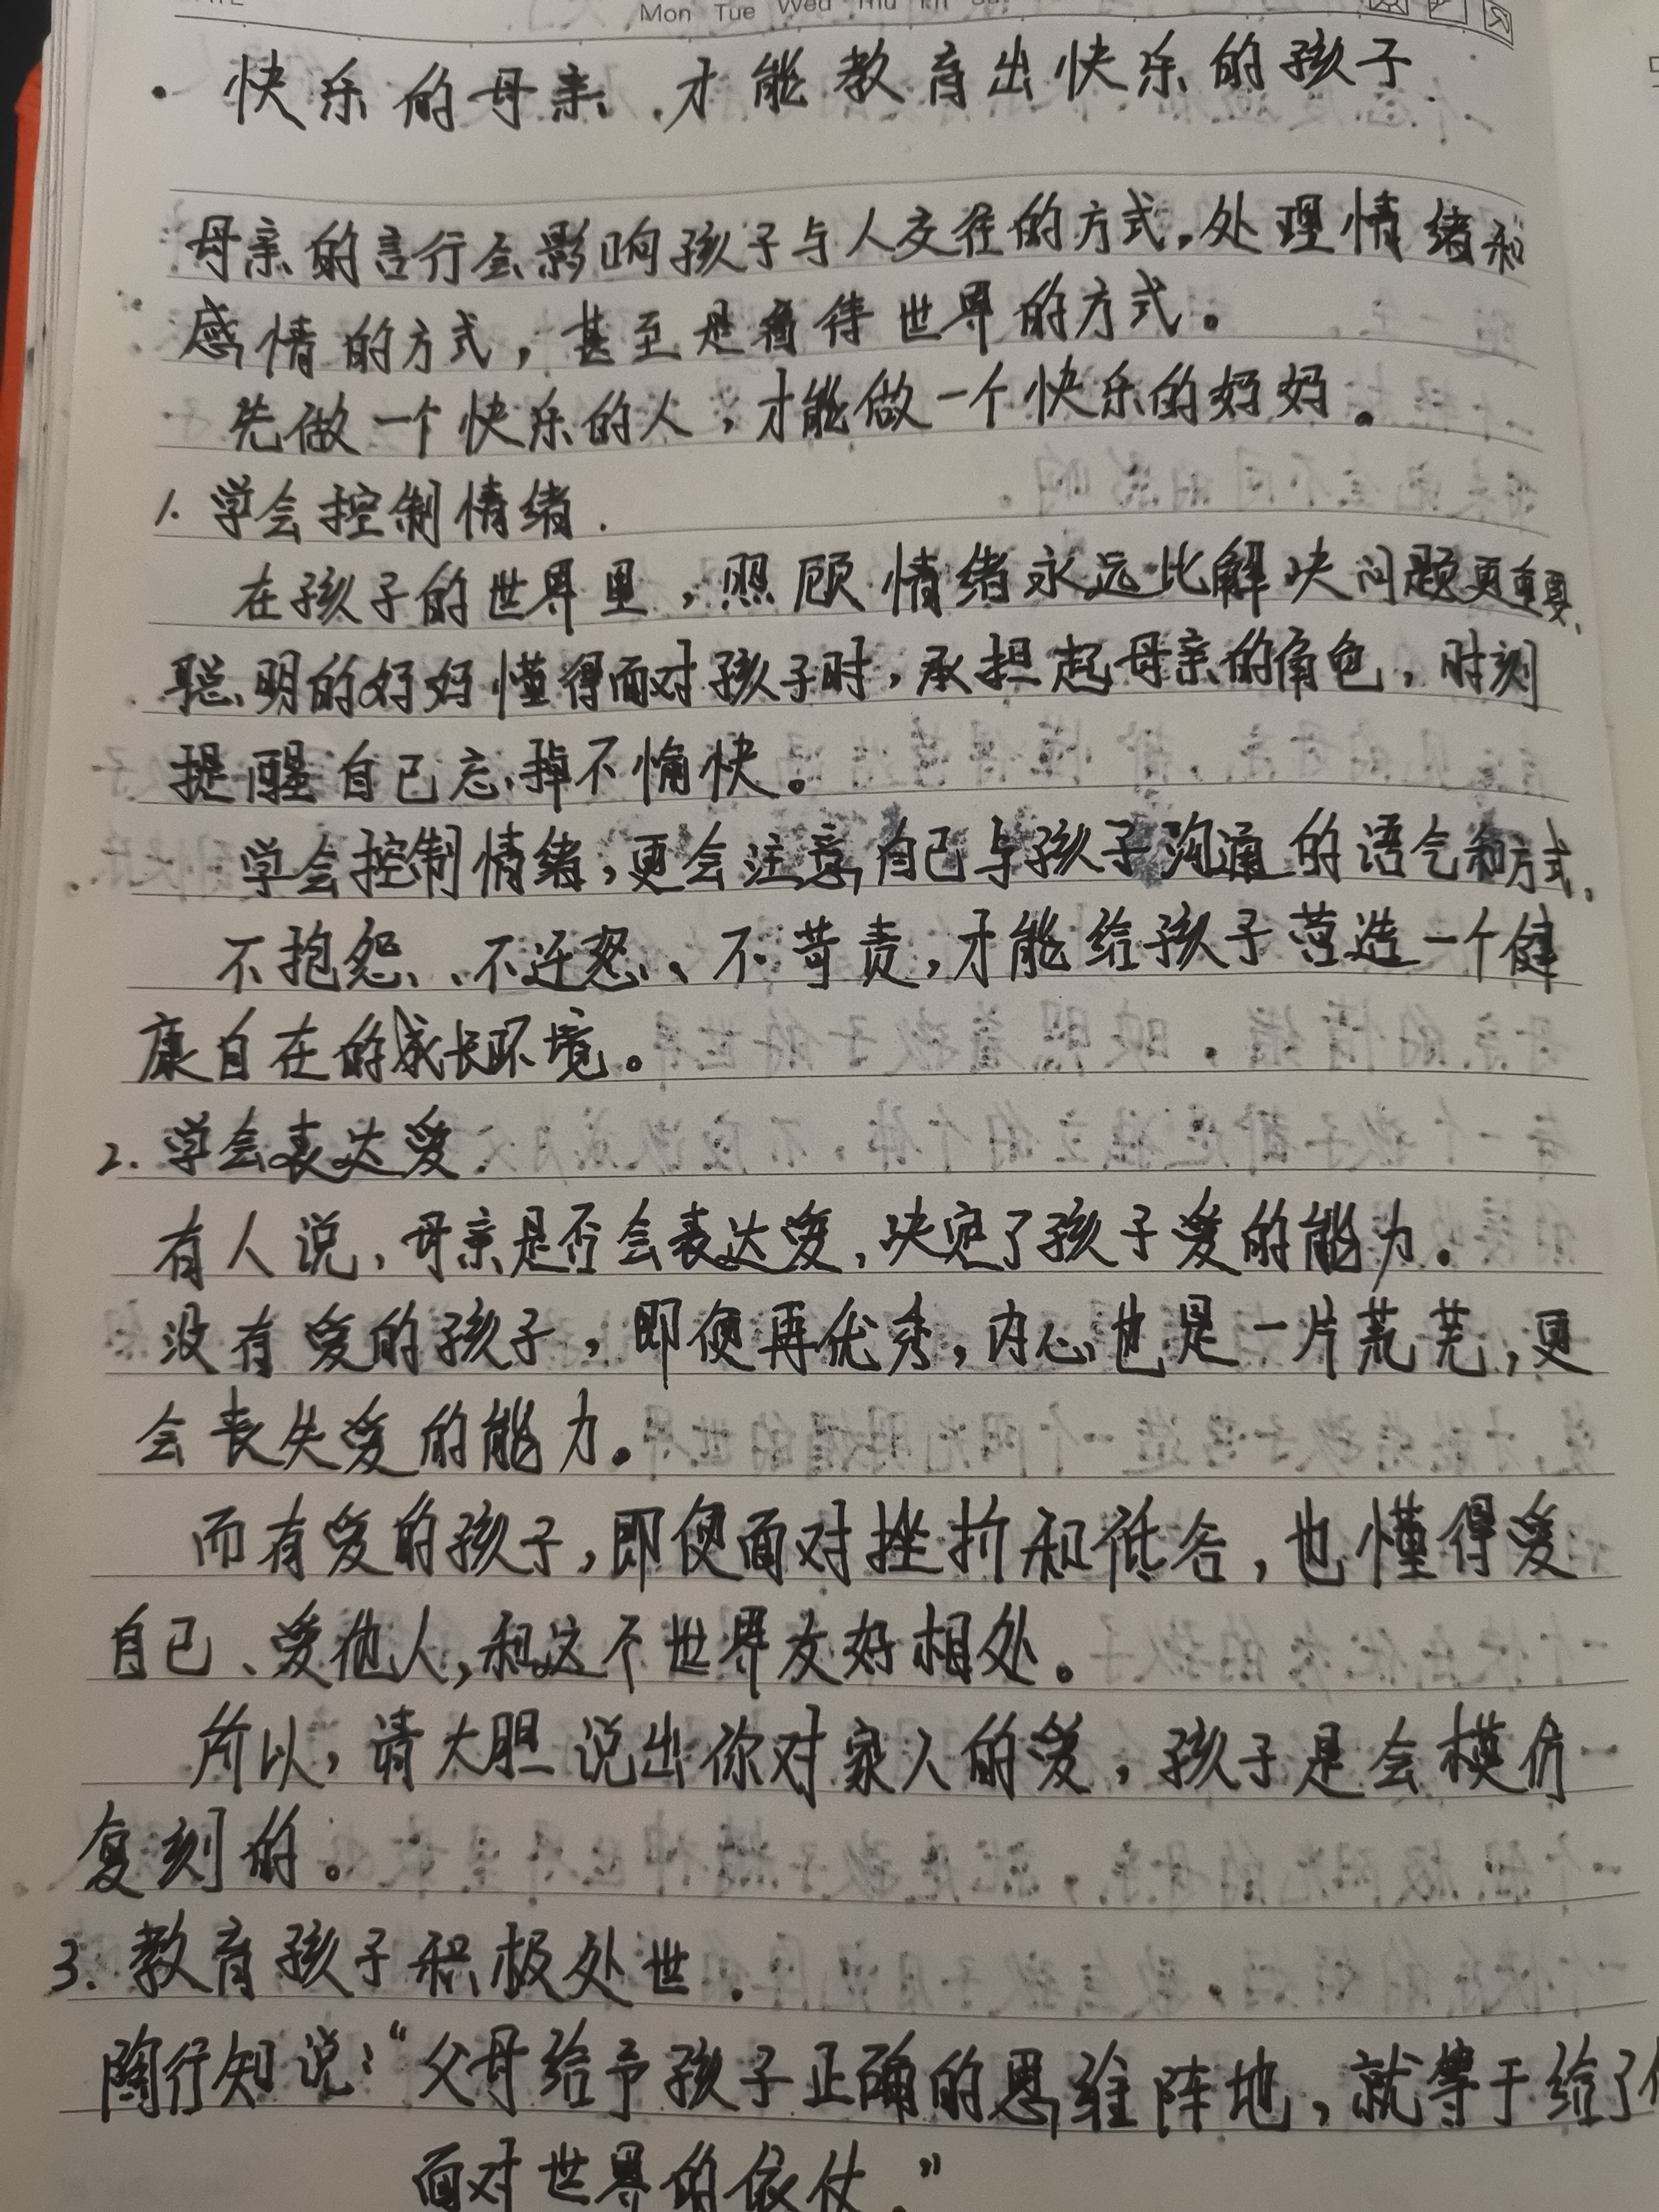 Mon Tue Wed Thu Fri
· 快乐的母亲,才能教育出快乐的孩子
母亲的言行会影响孩子与人交往的方式,处理情绪和
感情的方式,甚至是看待世界的方式。
先做一个快乐的人,才能做一个快乐的妈妈。
1. 学会控制情绪.
在孩子的世界里,照顾情绪永远比解决问题更重要、
聪明的妈妈懂得面对孩子时,承担起母亲的角色,时刻
提醒自己忘掉不愉快。
学会控制情绪,更会注意自己与孩子沟通的语气和方式、
不抱怨、不迁怒、不苛责,才能给孩子营造一个健
康自在的成长环境。
2. 学会表达爱.
有人说,母亲是否会表达爱,决定了孩子爱的能力。
没有爱的孩子,即便再优秀,内心也是一片荒芜,更
会丧失爱的能力。
而有爱的孩子,即便面对挫折和低谷,也懂得爱
自己、爱他人,和这个世界友好相处。
所以,请大胆说出你对家人的爱,孩子是会模仿
复刻的。
3. 教育孩子积极处世.
陶行知说:“父母给予孩子正确的思维阵地,就等于给了
面对世界的依仗.”